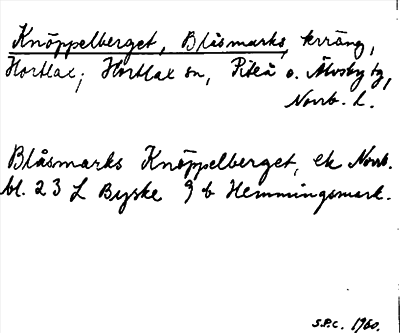 Knöppelberget, Blåsmarks, krräng,
Hortlax; Hortlax sn, Piteå o. Älvsby tg,
Norrb. l.
Blåsmarks Knöppelberget, ek Norrb.
bl. 23 L Byske 9 b Hemmingsmark.
S.P.C. 1960.